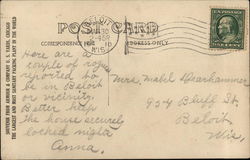 POST CARD
CORRESPONDENCE HERE
ADDRESS ONLY
SOUVENIR FROM ARMOUR & COMPANY U. S. YARDS, CHICAGO
THE LARGEST AND MOST SANITARY PACKING PLANT IN THE WORLD
BELOIT
Here are a
couple of rogues
reported to
be in Beloit
or vicinity
Better keep
the house securely
locked nights
Anna.
Mrs. Mabel Dearhammer
904 Bluff St.
Beloit
Wis